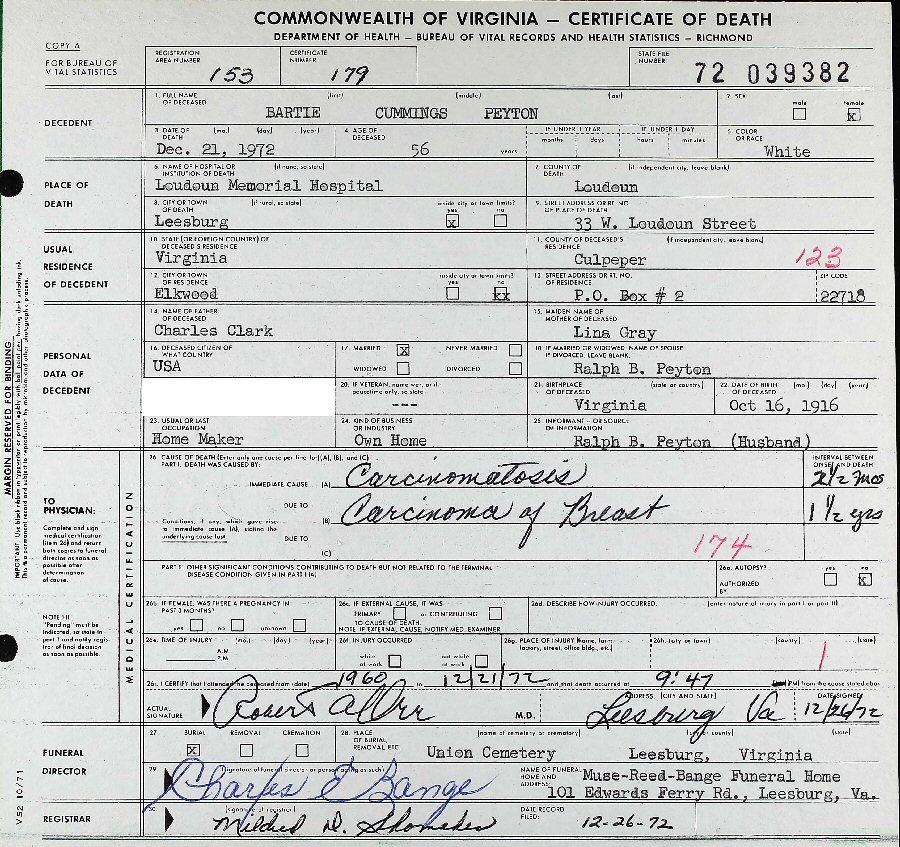 COMMONWEALTH OF VIRGINIA — CERTIFICATE OF DEATH
DEPARTMENT OF HEALTH — BUREAU OF VITAL RECORDS AND HEALTH STATISTICS — RICHMOND
COPY A
FOR BUREAU OF
VITAL STATISTICS
REGISTRATION
AREA NUMBER 153
CERTIFICATE
NUMBER 179
STATE FILE
NUMBER 72 039382
DECEDENT
1. FULL NAME (first) (middle) (last)
OF DECEASED
BARTIE CUMMINGS PEYTON
2. SEX male female X
3. DATE OF (mo.) (day) (year)
DEATH
Dec. 21, 1972
4. AGE OF
DECEASED
56 years
IF UNDER 1 YEAR IF UNDER 1 DAY
months days hours minutes
5. COLOR
OR RACE
White
PLACE OF
DEATH
6. NAME OF HOSPITAL OR (if none, so state)
INSTITUTION OF DEATH
Loudoun Memorial Hospital
7. COUNTY OF (if independent city, leave blank)
DEATH
Loudoun
8. CITY OR TOWN (if rural, so state) inside city or town limits?
OF DEATH yes no
Leesburg X
9. STREET ADDRESS OR RT. NO.
OF PLACE OF DEATH
33 W. Loudoun Street
USUAL
RESIDENCE
OF DECEDENT
10. STATE (OR FOREIGN COUNTRY) OF
DECEASED'S RESIDENCE
Virginia
11. COUNTY OF DECEASED'S (if independent city, leave blank)
RESIDENCE
Culpeper 123
12. CITY OR TOWN inside city or town limits?
OF RESIDENCE yes no
Elkwood xx
13. STREET ADDRESS OR RT. NO. ZIP CODE
OF RESIDENCE
P.O. Box # 2 22718
PERSONAL
DATA OF
DECEDENT
14. NAME OF FATHER
OF DECEASED
Charles Clark
15. MAIDEN NAME OF
MOTHER OF DECEASED
Lina Gray
16. DECEASED CITIZEN OF
WHAT COUNTRY
USA
17. MARRIED X NEVER MARRIED
WIDOWED DIVORCED
18. IF MARRIED OR WIDOWED NAME OF SPOUSE
IF DIVORCED, LEAVE BLANK.
Ralph B. Peyton
20. IF VETERAN, name war, or if
peacetime only, so state
---
21. BIRTHPLACE (state or country)
OF DECEASED
Virginia
22. DATE OF BIRTH (mo.) (day) (year)
OF DECEASED
Oct 16, 1916
23. USUAL OR LAST
OCCUPATION
Home Maker
24. KIND OF BUSINESS
OR INDUSTRY
Own Home
25. INFORMANT — OR SOURCE
OF INFORMATION
Ralph B. Peyton (Husband)
MARGIN RESERVED FOR BINDING
TO
PHYSICIAN:
Complete and sign
medical certification
(item 26) and return
both copies to funeral
director as soon as
possible after
determination
of cause.
NOTE !!!
"Pending" must be
indicated, so state in
part I and notify regis-
trar of final decision
as soon as possible.
MEDICAL CERTIFICATION
26. CAUSE OF DEATH (Enter only one cause per line for (A), (B), and (C)
PART I. DEATH WAS CAUSED BY:
INTERVAL BETWEEN
ONSET AND DEATH
IMMEDIATE CAUSE (A) Carcinomatosis 2 1/2 mos
DUE TO
(B) Carcinoma of Breast 1 1/2 yrs
Conditions, if any, which gave rise
to immediate cause (A), stating the
underlying cause last
DUE TO
(C)
174
PART II. OTHER SIGNIFICANT CONDITIONS CONTRIBUTING TO DEATH BUT NOT RELATED TO THE TERMINAL
DISEASE CONDITION GIVEN IN PART I (A)
26a. AUTOPSY? yes no X
AUTHORIZED
BY
26b. IF FEMALE, WAS THERE A PREGNANCY IN
PAST 3 MONTHS?
yes no unknown
26c. IF EXTERNAL CAUSE, IT WAS
PRIMARY or CONTRIBUTING
TO CAUSE OF DEATH.
NOTE: IF EXTERNAL CAUSE, NOTIFY MED. EXAMINER
26d. DESCRIBE HOW INJURY OCCURRED. (enter nature of injury in part I or part II)
26e. TIME OF INJURY (mo.) (day) (year)
A.M.
P.M.
26f. INJURY OCCURRED
while at work not while at work
26g. PLACE OF INJURY (home, farm,
factory, street, office bldg., etc.)
26h. (city or town) (county) (state)
1
26i. I CERTIFY that I attended the deceased from (date) 1960 to 12/21/72 and that death occurred at 9:47 PM from the cause stated above
ACTUAL
SIGNATURE Robert A Orr M.D.
ADDRESS (CITY AND STATE)
Leesburg Va
DATE SIGNED
12/26/72
FUNERAL
DIRECTOR
27. BURIAL REMOVAL CREMATION
X
28. PLACE (name of cemetery or crematory) (city or county) (state)
OF BURIAL,
REMOVAL, ETC.
Union Cemetery Leesburg, Virginia
29. (signature of funeral director or person acting as such)
Charles E Bange
NAME OF FUNERAL
HOME AND
ADDRESS
Muse-Reed-Bange Funeral Home
101 Edwards Ferry Rd., Leesburg, Va.
REGISTRAR
30. (signature of registrar)
Mildred D. Shomaker
DATE RECORD
FILED:
12-26-72
VS2 10/71